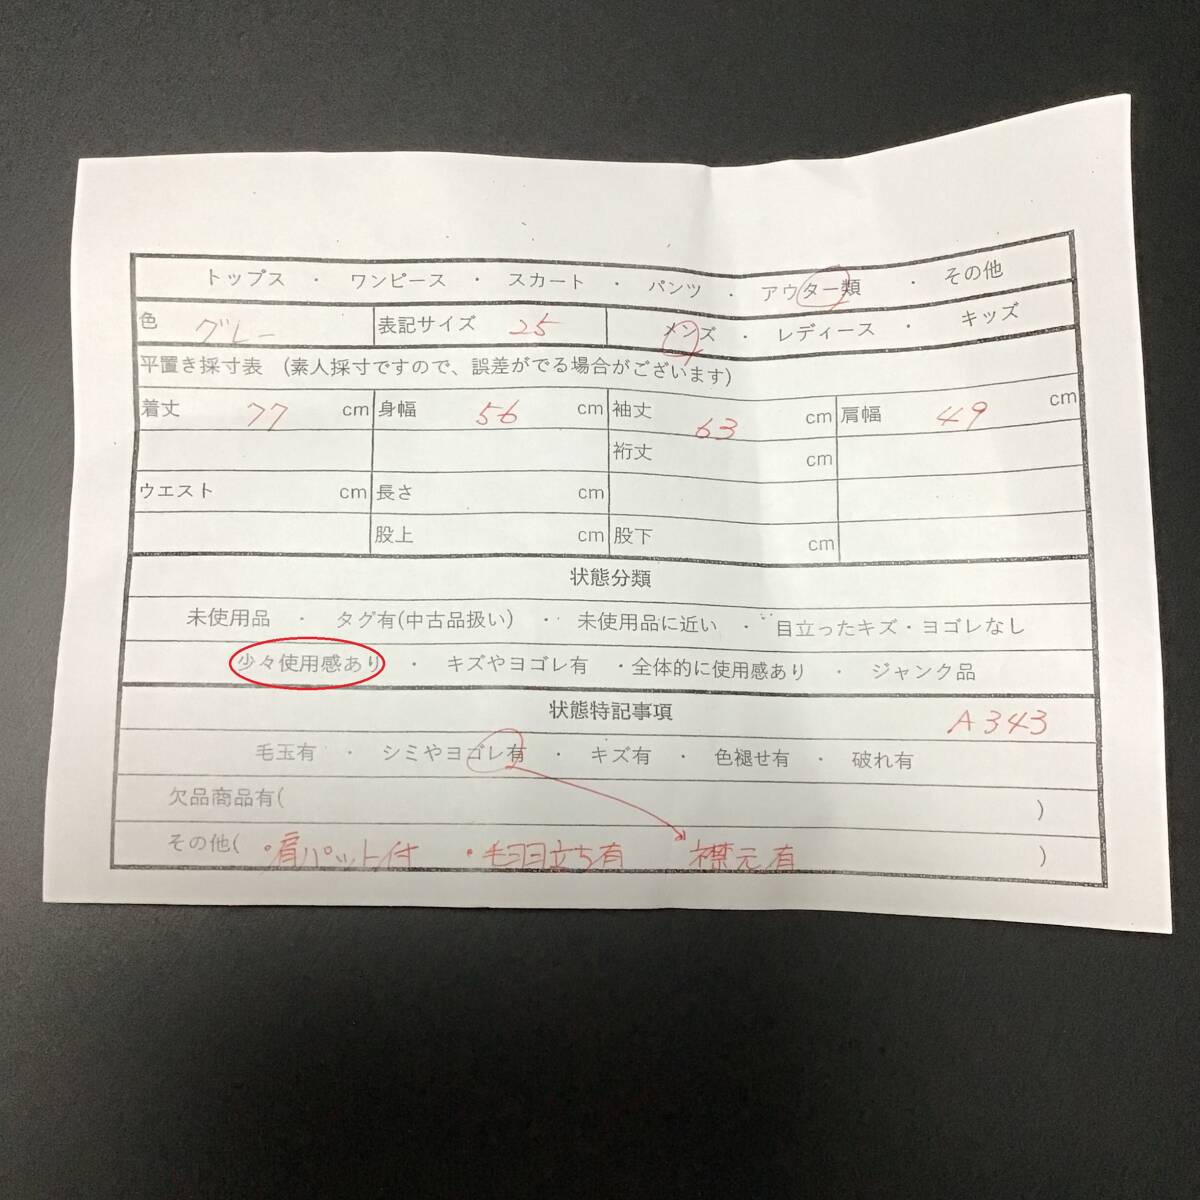 トップス ・ ワンピース ・ スカート ・ パンツ ・ アウター類 ・ その他
色 グレー 表記サイズ 25 メンズ ・ レディース ・ キッズ
平置き採寸表 (素人採寸ですので、誤差がでる場合がございます)
着丈 77 cm 身幅 56 cm 袖丈 63 cm 肩幅 49 cm
裄丈 cm
ウエスト cm 長さ cm
股上 cm 股下 cm
状態分類
未使用品 ・ タグ有(中古品扱い) ・ 未使用品に近い ・ 目立ったキズ・ヨゴレなし
少々使用感あり ・ キズやヨゴレ有 ・全体的に使用感あり ・ ジャンク品
状態特記事項 A343
毛玉有 ・ シミやヨゴレ有 ・ キズ有 ・ 色褪せ有 ・ 破れ有
欠品商品有( )
その他( ・肩パット付 ・毛羽立ち有 襟元有 )